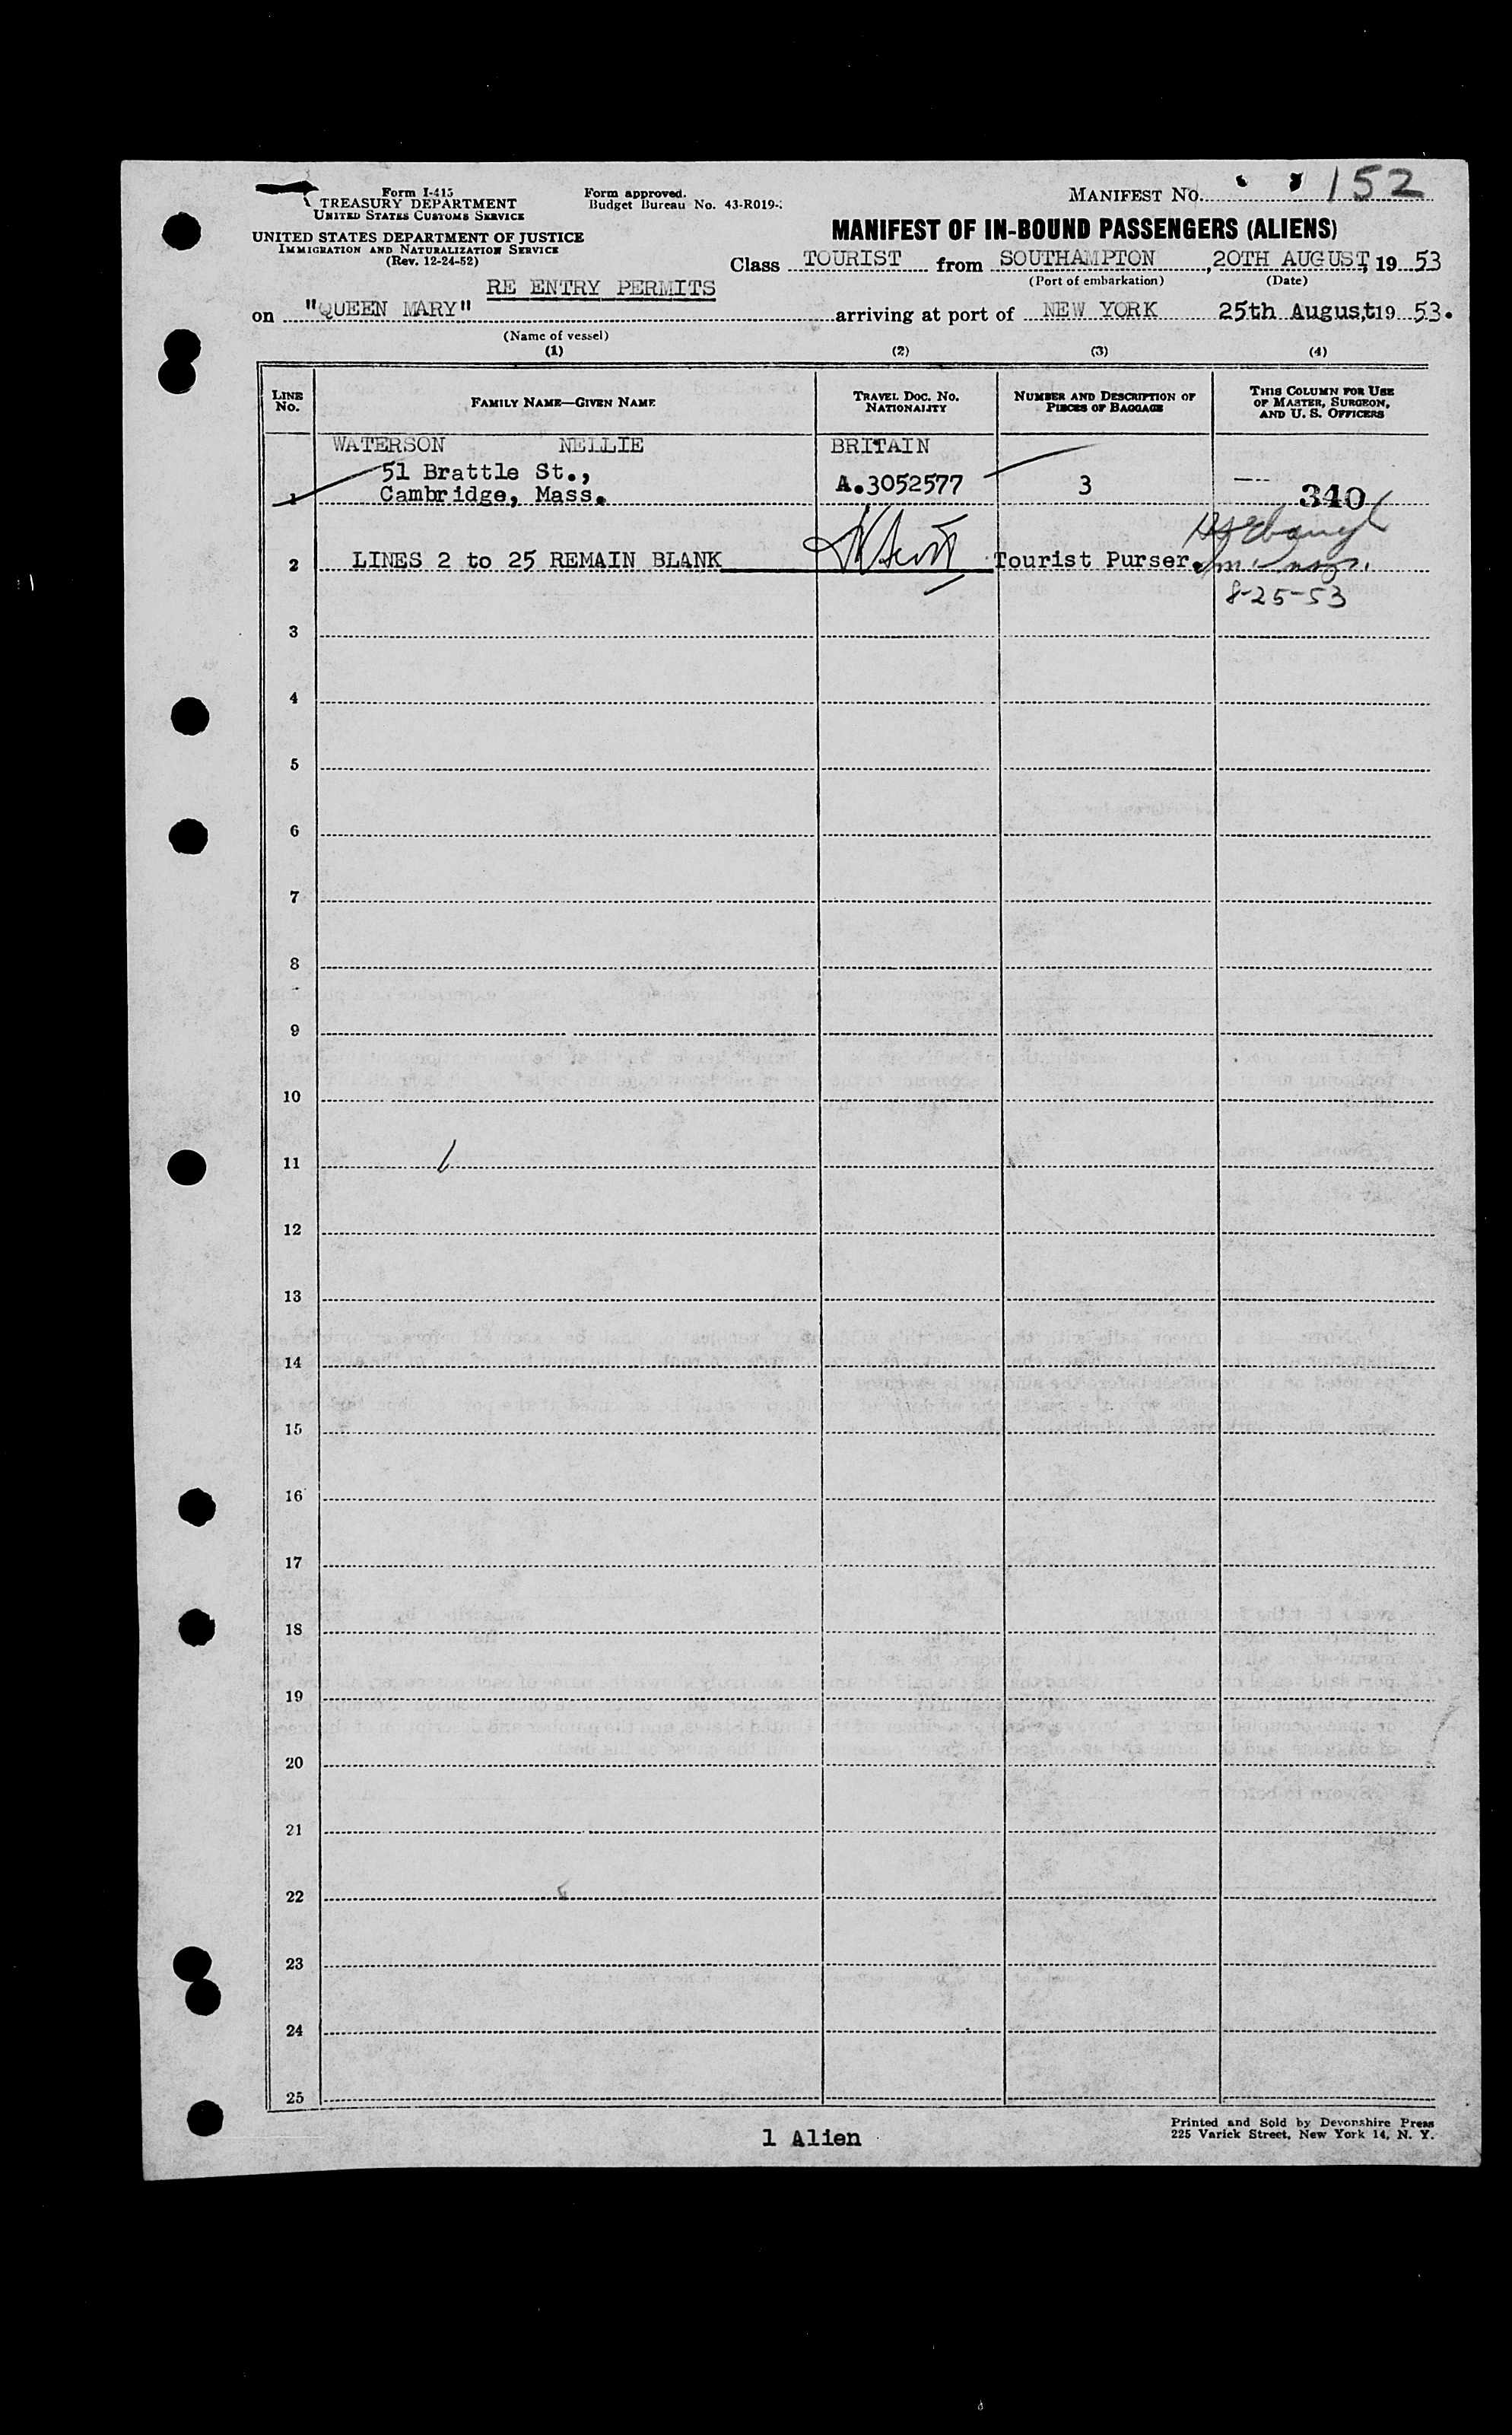 Form I-415
TREASURY DEPARTMENT
UNITED STATES CUSTOMS SERVICE
UNITED STATES DEPARTMENT OF JUSTICE
IMMIGRATION AND NATURALIZATION SERVICE
(Rev. 12-24-52)
Form approved.
Budget Bureau No. 43-R019-
MANIFEST NO. 152
MANIFEST OF IN-BOUND PASSENGERS (ALIENS)
Class TOURIST from SOUTHAMPTON, 20TH AUGUST, 19 53
(Port of embarkation) (Date)
RE ENTRY PERMITS
on "QUEEN MARY" arriving at port of NEW YORK 25th August, 19 53.
(Name of vessel)
(1) (2) (3) (4)
LINE NO. FAMILY NAME—GIVEN NAME TRAVEL DOC. NO. NATIONALITY NUMBER AND DESCRIPTION OF PIECES OF BAGGAGE THIS COLUMN FOR USE OF MASTER, SURGEON, AND U. S. OFFICERS
WATERSON NELLIE BRITAIN
51 Brattle St.,
1 Cambridge, Mass. A.3052577 3 340
2 LINES 2 to 25 REMAIN BLANK Tourist Purser.
8-25-53
3
4
5
6
7
8
9
10
11
12
13
14
15
16
17
18
19
20
21
22
23
24
25
1 Alien
Printed and Sold by Devonshire Press
225 Varick Street, New York 14, N. Y.